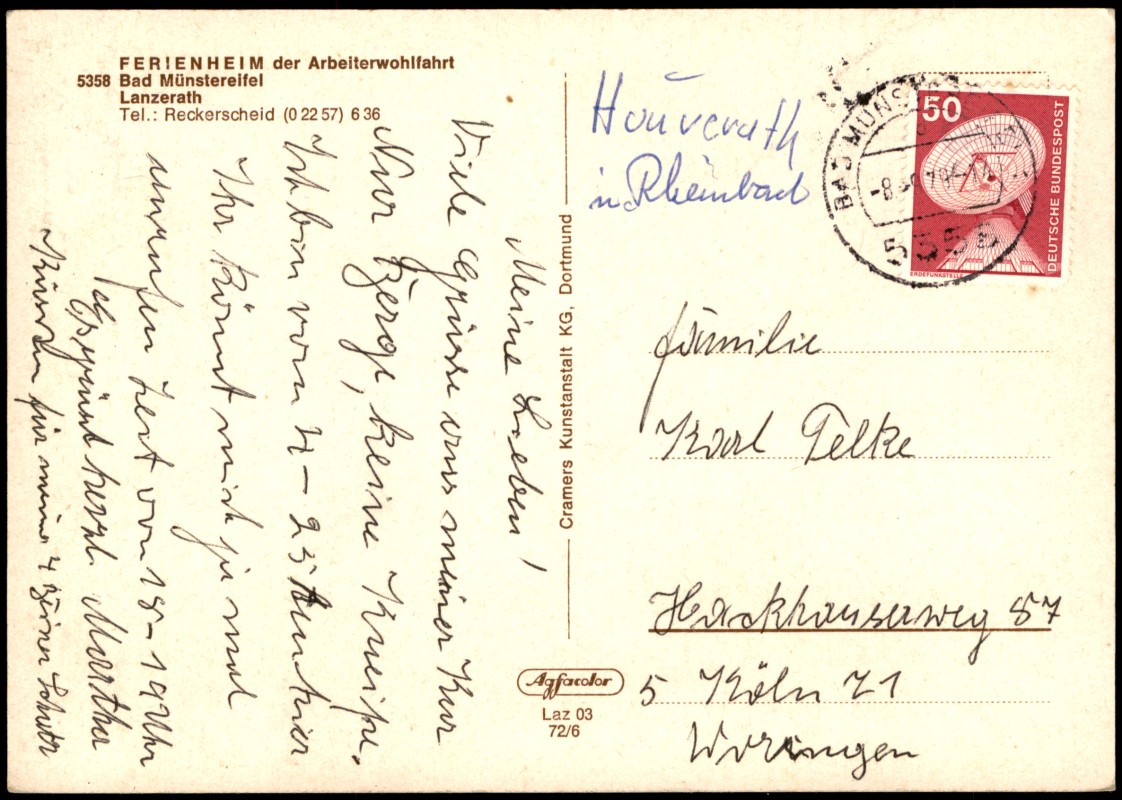 FERIENHEIM der Arbeiterwohlfahrt
5358 Bad Münstereifel
Lanzerath
Tel.: Reckerscheid (0 22 57) 6 36
Meine Lieben!
Viele Grüsse von meiner Kur
Nur Berge, keine Kneipe.
Ich bin vom 4 - 25ten hier
Ihr könnt mich ja mal
anrufen Zeit von 18 - 19 Uhr
Es grüsst herzl. Martha
für meine 4
Cramers Kunstanstalt KG, Dortmund
Agfacolor
Laz 03
72/6
Houverath
in Rheinbach
BAD MÜNST
-8
50
DEUTSCHE BUNDESPOST
ERDEFUNKSTELLE
Familie
Karl Pelke
Hackhauserweg 57
5 Köln 71
Worringen